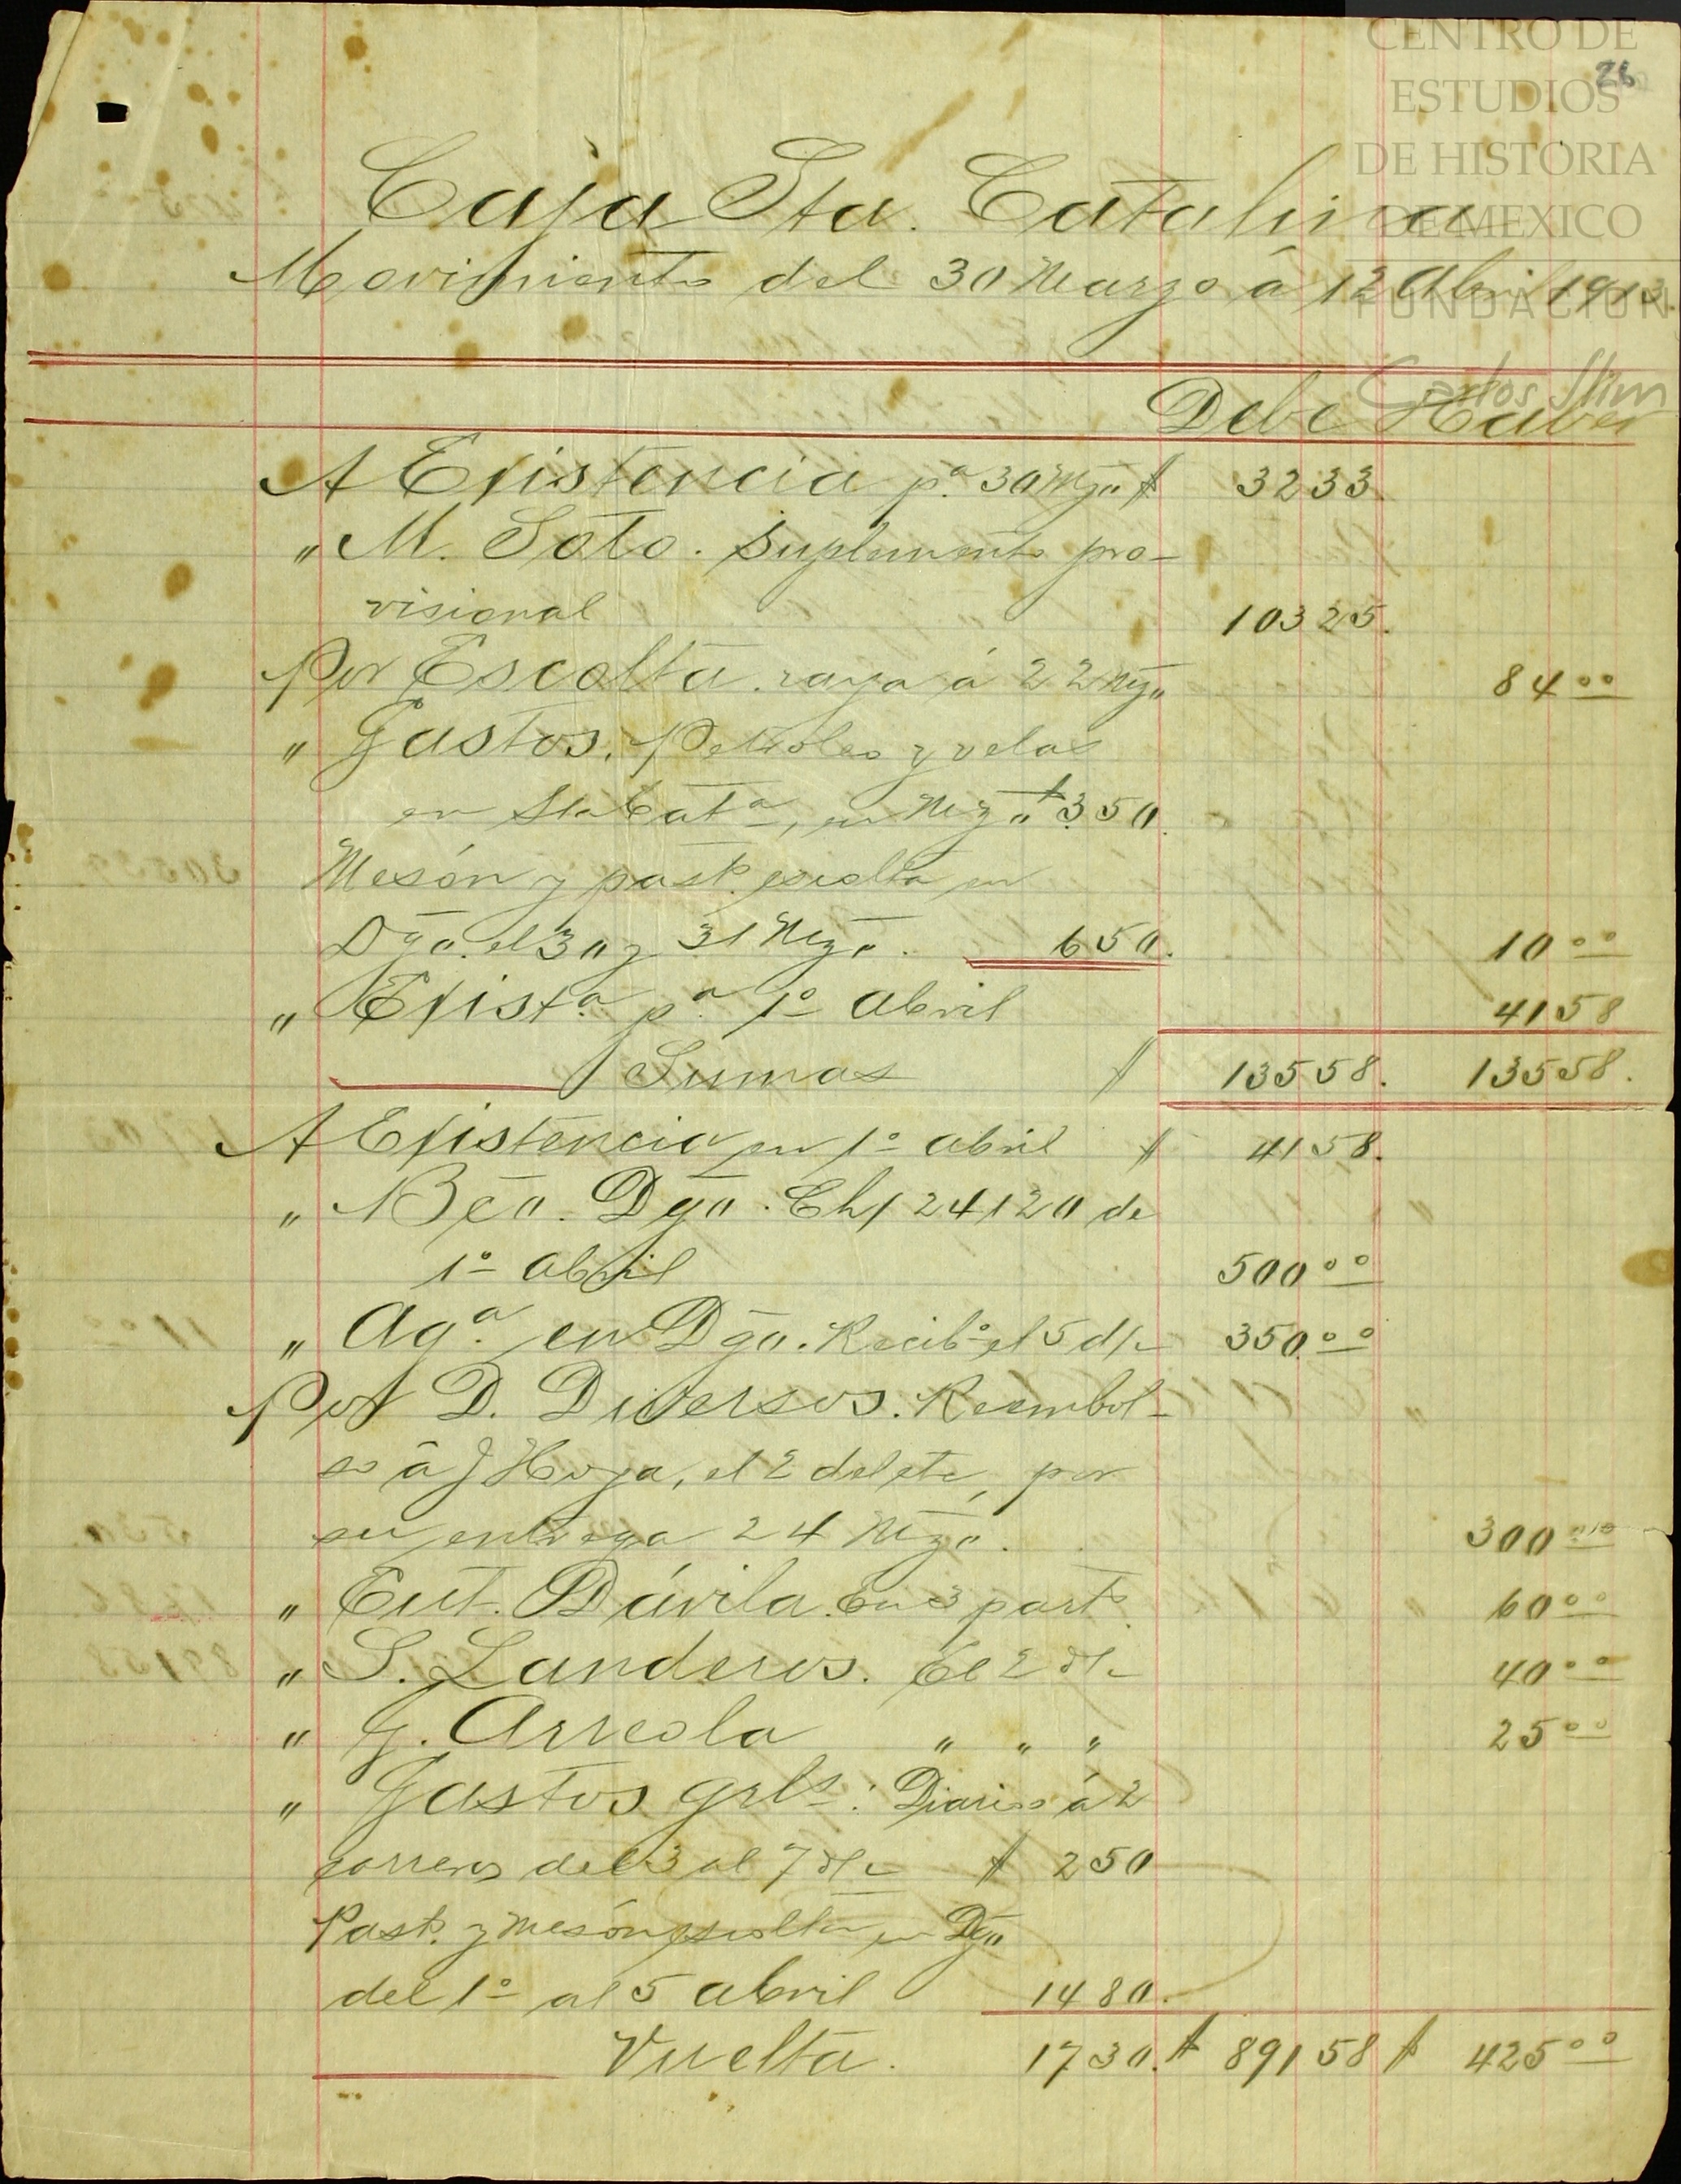 CENTRO DE
ESTUDIOS
DE HISTORIA
DE MEXICO
FUNDACION
Carlos Slim
26
Caja Sta. Catalina
Movimiento del 30 Marzo á 12 Abril 1913.
Debe Haber
A Existencia p.ª 30 Mzo $ 3233
" M. Soto. Suplemento pro-
visional 10325.
Por Escolta. raya á 22 Mzo 84 00
" Gastos. Petroleo y velas
en Sta Catª, en Mzo $ 3.50.
Mesón y past. escolta en
Dgo. el 30 y 31 Mzo. 650. 10 00
" Existª pª 1º Abril 4158
Sumas $ 13558. 13558.
A Existencia en 1º abril $ 4158.
" Bco. Dgo. Ch/ 24120 de
1º abril 500 00
" Agª. en Dgo. Recib. el 5 d/c 350 00
Por D. Diversos. Reembol-
so á J Hoya, el 2 del ete, por
su entrega 24 Mzo. 300 00
" Eut. Dávila. En 3 part. 60 00
" S. Landeros. El 2 d/c 40 00
" G. Arreola " " " 25 00
" Gastos grls: Diarios á 2
correos del 3 al 7 d/c $ 250
Past. y mesón escolta en Dgo
del 1º al 5 abril 1480.
Vuelta. 1730. $ 89158 $ 425 00